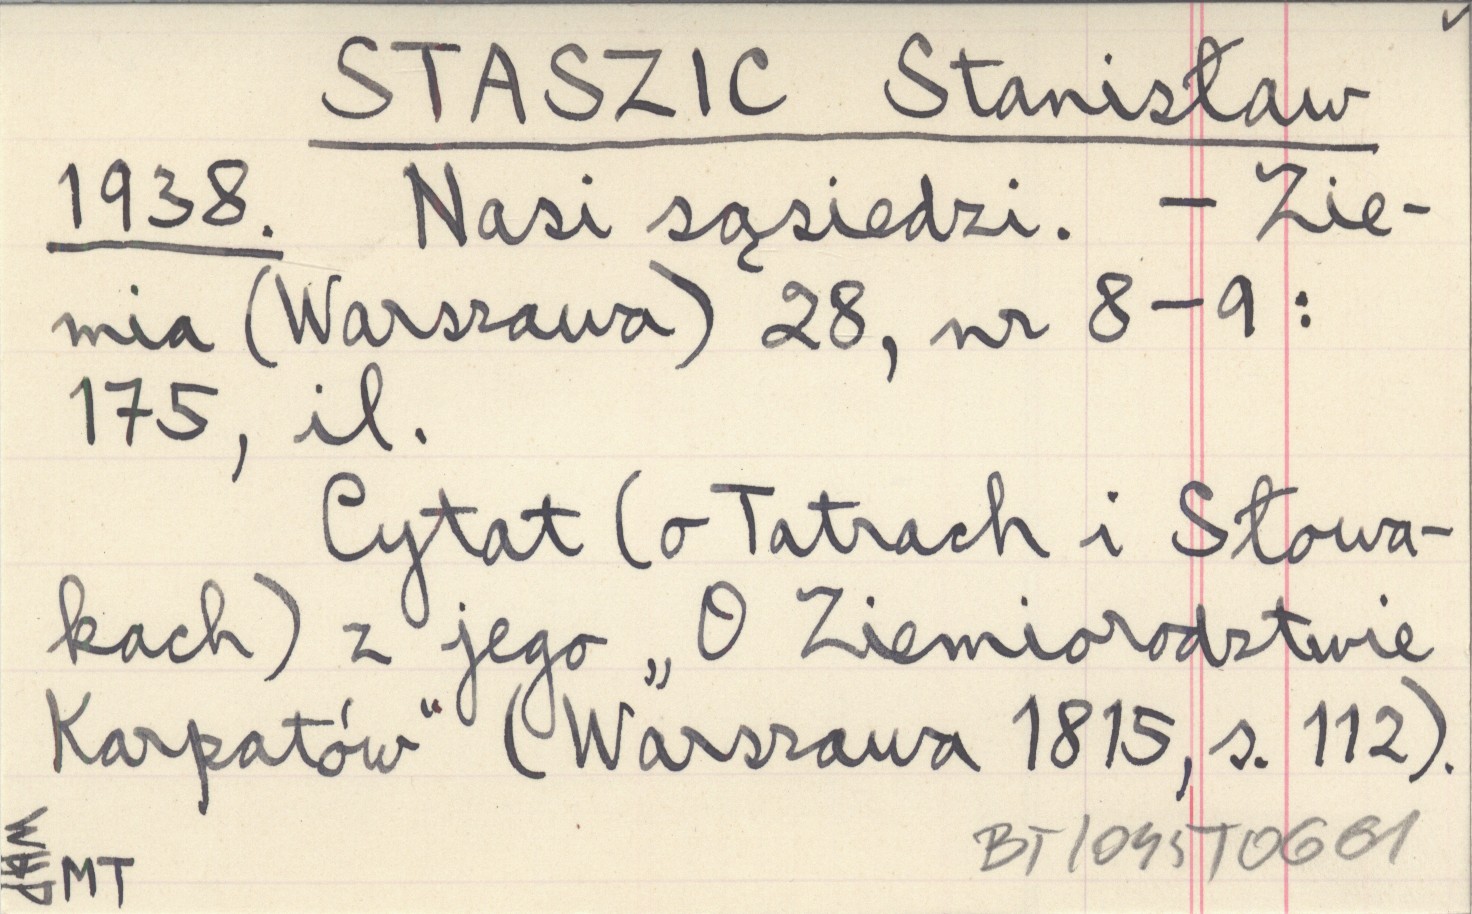 STASZIC Stanisław
1938. Nasi sąsiedzi. – Zie-
mia (Warszawa) 28, nr 8–9:
175, il.
Cytat (o Tatrach i Słowa-
kach) z jego „O Ziemiorodztwie
Karpatów“ (Warszawa 1815, s. 112).
MT